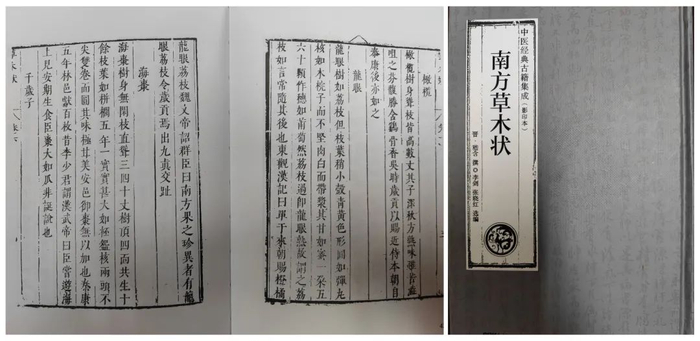 橄欖
橄欖樹身聳枝皆高數丈其子深秋方熟味雖苦澁
咀之芬馥勝含雞骨香吳時歲貢以賜近侍本朝自
泰康後亦如之
龍眼
龍眼樹如荔枝但枝葉稍小殼青黃色形圓如彈丸
核如木梡子而不堅肉白而帶漿其甘如蜜一朶五
六十顆作穗如蒲萄然荔枝過即龍眼熟故謂之荔
枝奴言常隨其後也東觀漢記曰單于來朝賜橙橘
龍眼荔枝魏文帝詔群臣曰南方果之珍異者有龍
眼荔枝令歲貢焉出九真交趾
海棗
海棗樹身無閑枝直聳三四十丈樹頂四面共生十
餘枝葉如栟櫚五年一實實甚大如杯盌核兩頭不
尖雙卷而圓其味極甘美安邑御棗無以加也泰康
五年林邑獻百枚昔李少君謂漢武帝曰臣嘗遊海
上見安期生食臣棗大如瓜非誕說也
千歲子
中医经典古籍集成（影印本）
南方草木状
晋·嵇含 撰 ◎李剑 张晓红 选编